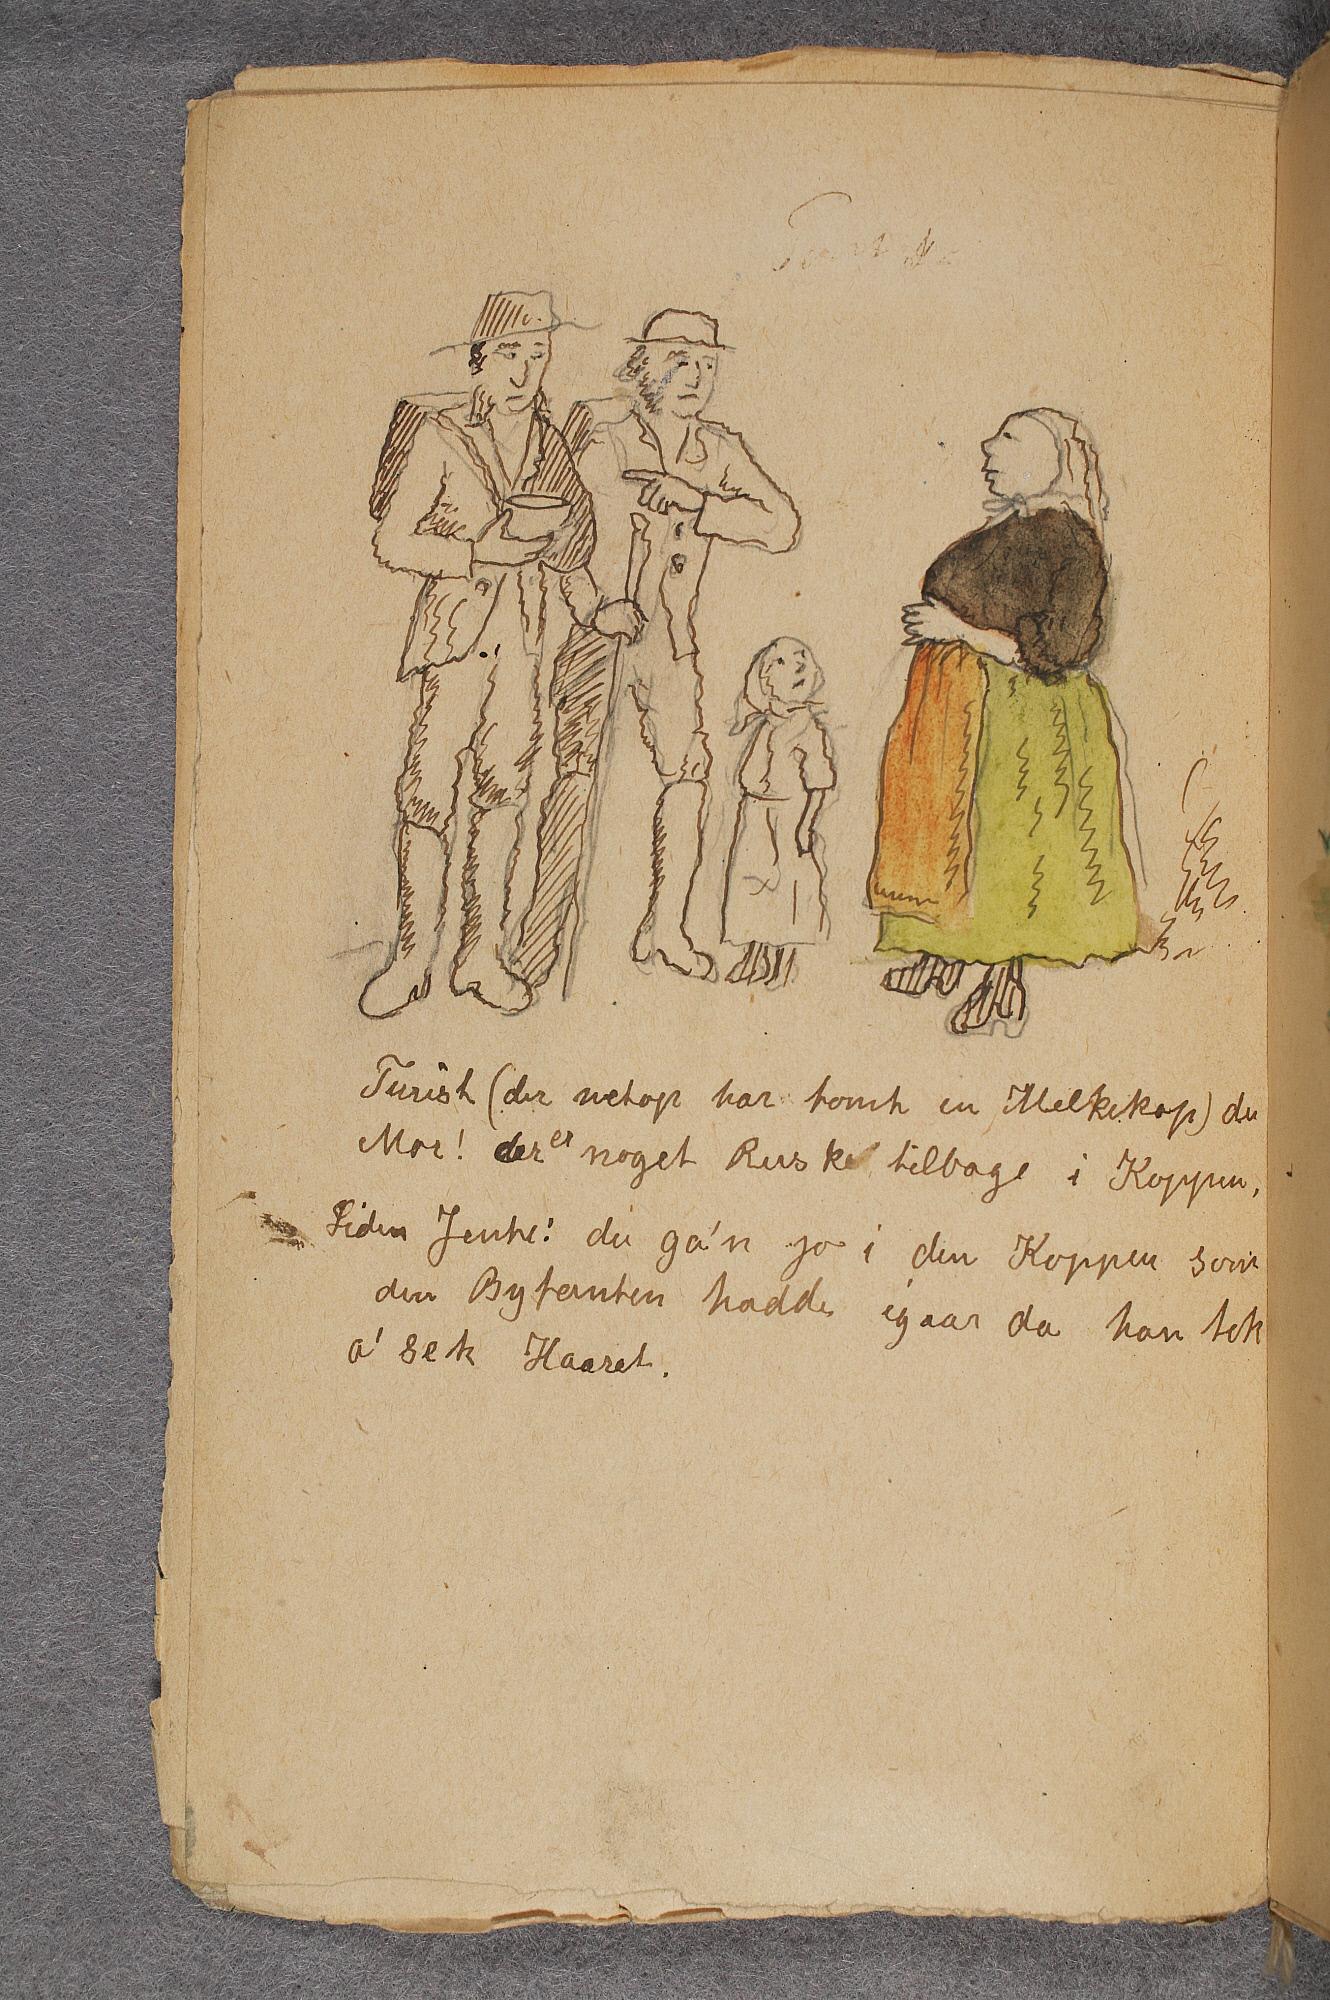 Turist (der netop har tømt en Melkekop) du
Mor! der er noget Rusk tilbage i Koppen,
Liden Jente: du ga'n jo i den Koppen som
den Bytanten hadde igaar da han tok
a' sek Haaret.